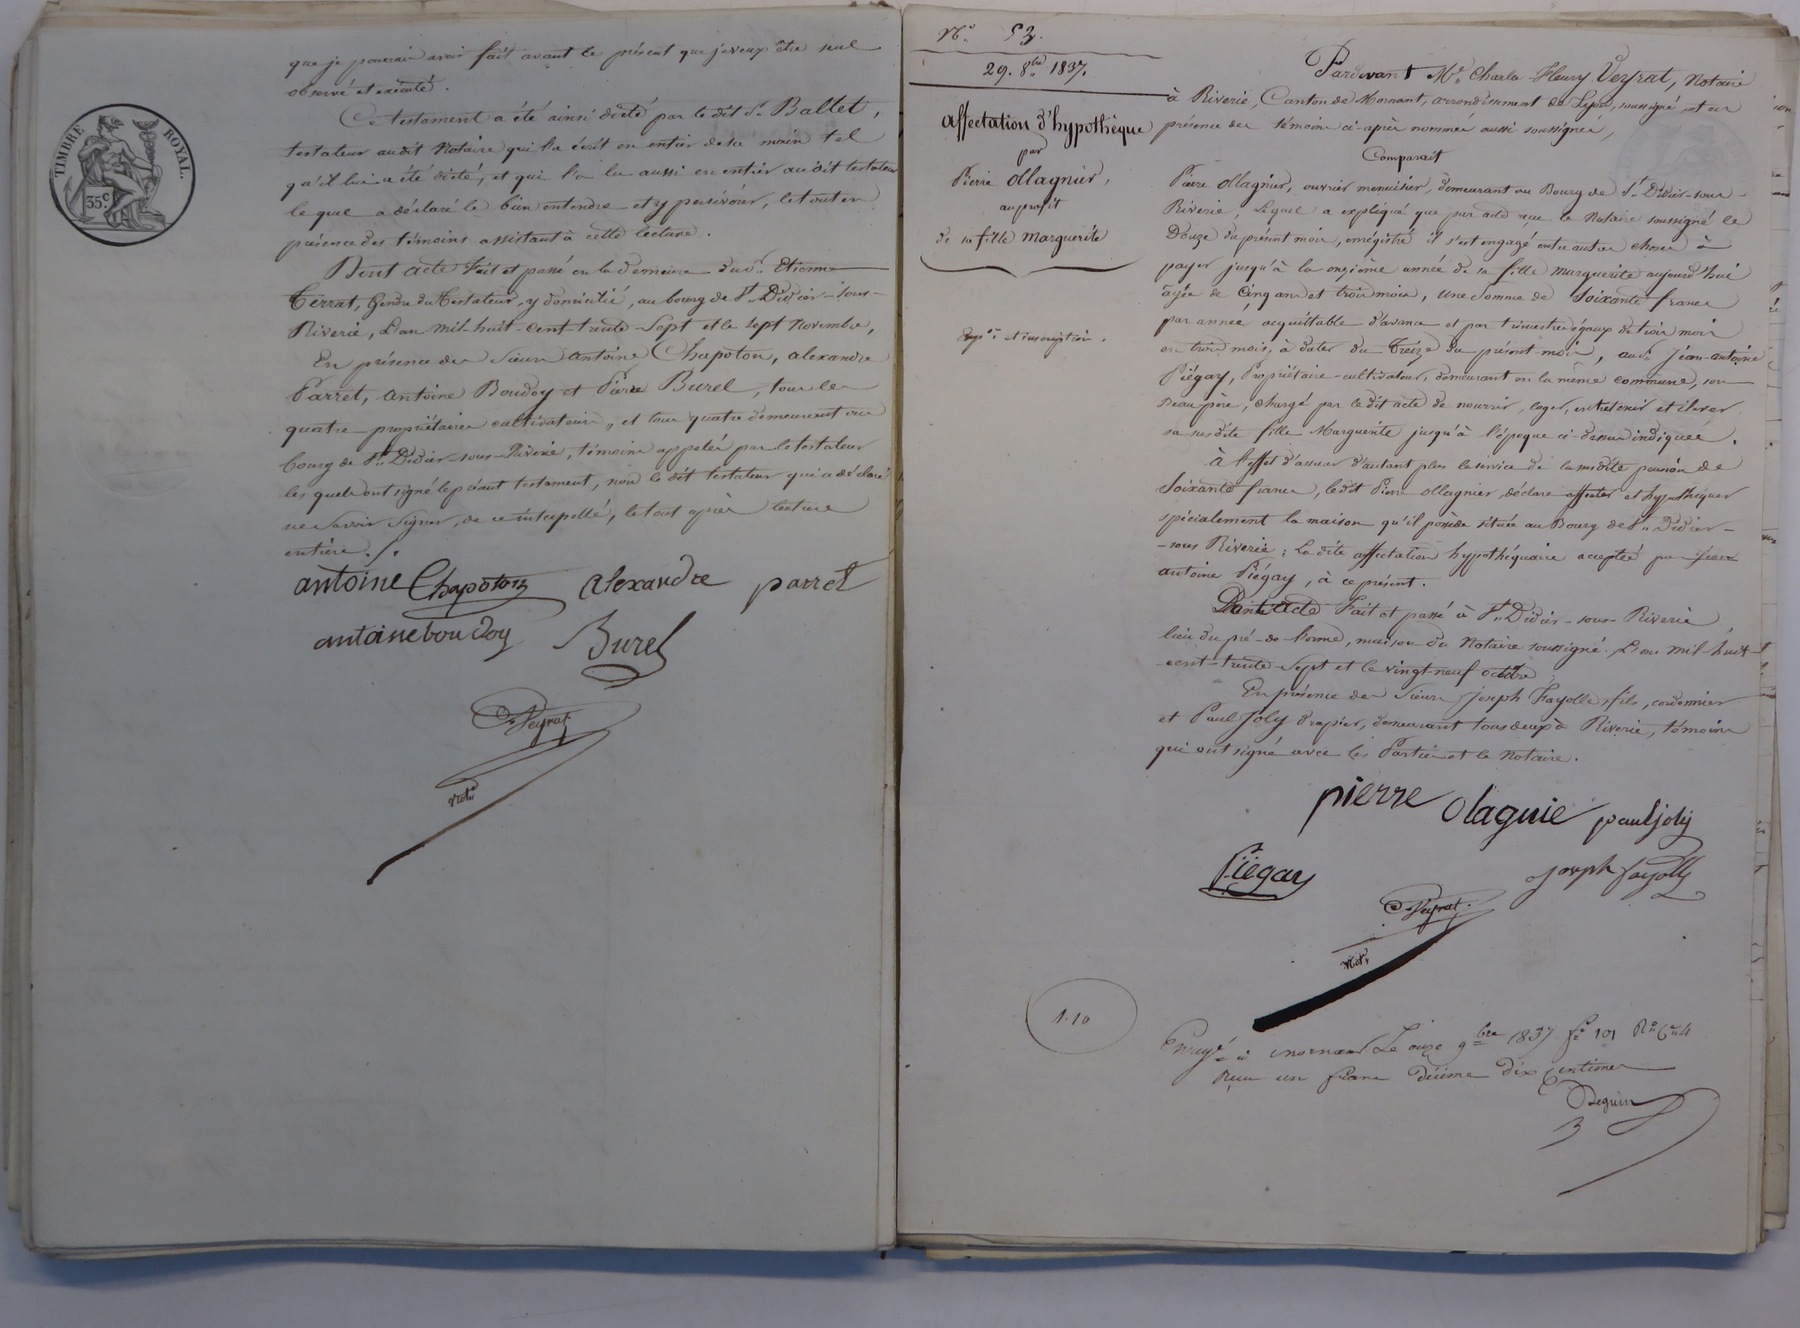 TIMBRE ROYAL.
35c
que je pourrai avoir fait avant le présent que je veux être seul
observé et exécuté.
Ce testament a été ainsi dicté par le dit Sr Ballet,
testateur audit Notaire qui l'a écrit en entier de sa main tel
qu'il lui a été dicté, et qui l'a lu aussi en entier audit testateur
lequel a déclaré le bien entendre et y persévérer, le tout en
présence des témoins assistant à cette lecture.
Dont acte Fait et passé en la demeure du Sr Etienne
Terrat, Gendre du Testateur, y domicilié, au bourg de St Didier-sous-
Riverie, L'an mil-huit-cent-trente-Sept et le sept Novembre,
En présence des Sieurs Antoine Chapoton, Alexandre
Parret, Antoine Boudoy et Pierre Burel, tous les
quatre propriétaires cultivateurs, et tous quatre demeurant au
bourg de St Didier-sous-Riverie, témoins appelés par le testateur
lesquels ont signé le présent testament, non le dit testateur qui a déclaré
ne savoir signer, de ce interpellé, le tout après lecture
entière ./.
antoine Chapoton alexandre parret
antoine boudoy Burel
Veyrat
Notre
No. 53.
29. 8bre 1837.
Affectation d'hypothèque
par
Pierre Ollagnier,
au profit
de sa fille Marguerite
Expon et inscription.
Pardevant Me Charles-Fleury Veyrat, Notaire
à Riverie, Canton de Mornant, arrondissement de Lyon, soussigné et en
présence des témoins ci-après nommés aussi soussignés,
Comparait
Pierre Ollagnier, ouvrier menuisier, demeurant au Bourg de St Didier-sous-
Riverie, Lequel a expliqué que par acte reçu le Notaire soussigné le
Douze du présent mois, enregistré, il s'est engagé entre autres choses à
payer jusqu'à la onzième année de sa fille Marguerite aujourd'hui
âgée de Cinq ans et trois mois, une somme de soixante francs
par année acquittable d'avance et par trimestres égaux de trois mois
en trois mois, à dater du Treize du présent mois, audit Jean-Antoine
Piégay, Propriétaire-cultivateur, demeurant en la même commune, son
beau père, chargé par le dit acte de nourrir, loger, entretenir et élever
sa susdite fille Marguerite jusqu'à l'époque ci-dessus indiquée.
à l'effet d'assurer d'autant plus le service de la susdite pension de
Soixante francs, le dit Pierre Ollagnier déclare affecter et hypothéquer
spécialement la maison qu'il possède située au Bourg de St Didier-
-sous Riverie; La dite affectation hypothécaire acceptée par Jean
antoine Piégay, à ce présent.
Dont Acte Fait et passé à St Didier-sous-Riverie,
lieu du pré-de-l'orme, maison du Notaire soussigné. L'an mil-huit-
-cent-trente-Sept et le vingt-neuf octobre
En présence des Sieurs Joseph Fayolle fils, cordonnier
et Paul Joly drapier, demeurant tous deux à Riverie, témoins
qui ont signé avec les Parties et le Notaire.
pierre olagnie paul joly
Piégay joseph fayolle
Veyrat
Not,
1.10
Enregé à Mornant Le onze 9bre 1837 fo 101 Ro Ce 4
Reçu un franc Décime dix Centimes